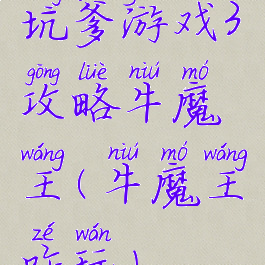 坑爹游戏3
gōng lüè niú mó
攻略牛魔
wáng niú mó wáng
王(牛魔王
zé wán